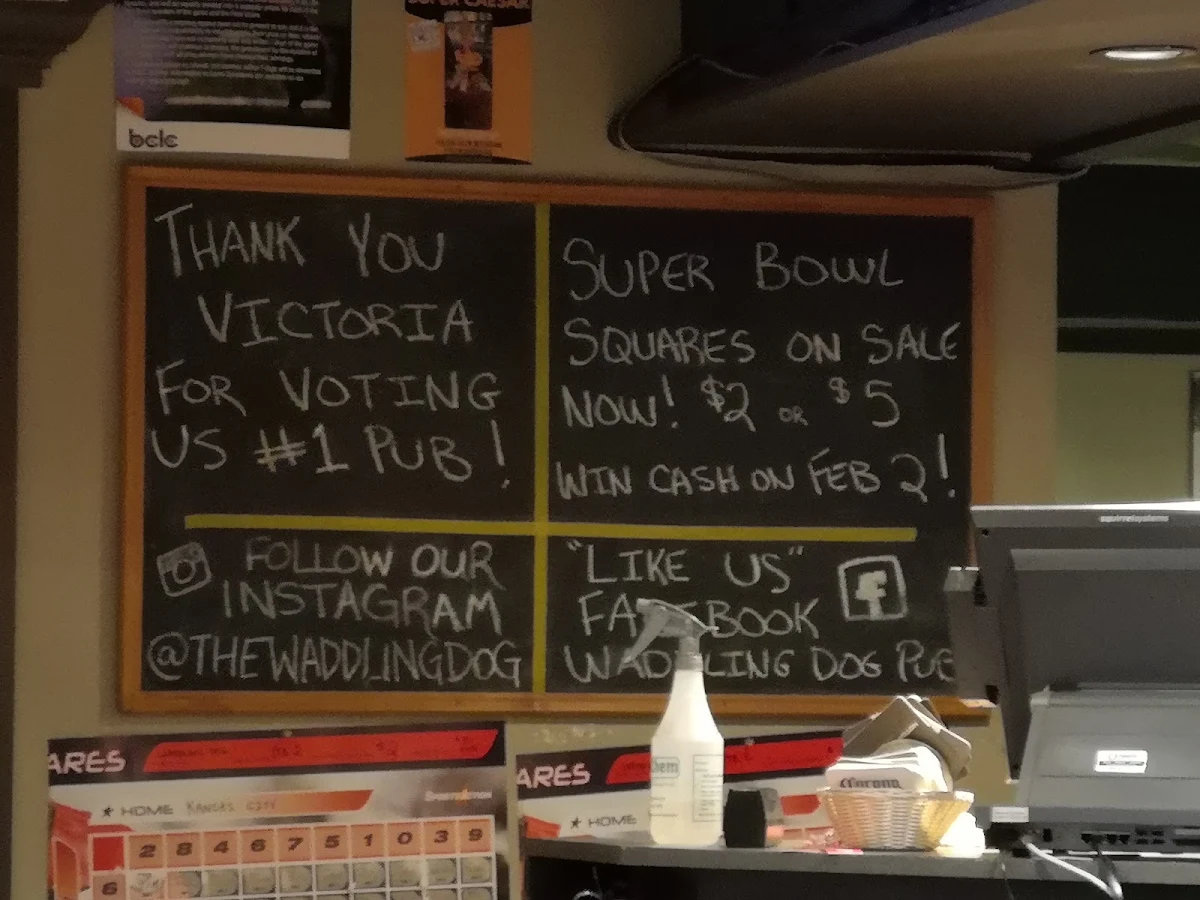 bclc
SUPER CAESAR
THANK YOU
VICTORIA
FOR VOTING
US #1 PUB!
SUPER BOWL
SQUARES ON SALE
NOW! $2 OR $5
WIN CASH ON FEB 2!
FOLLOW OUR
INSTAGRAM
@THEWADDLINGDOG
"LIKE US"
FA BOOK
WADDLING DOG PUB
ARES
HOME KANSAS CITY
2 8 4 6 7 5 1 0 3 9
6
ARES
HOME
hem
Corona